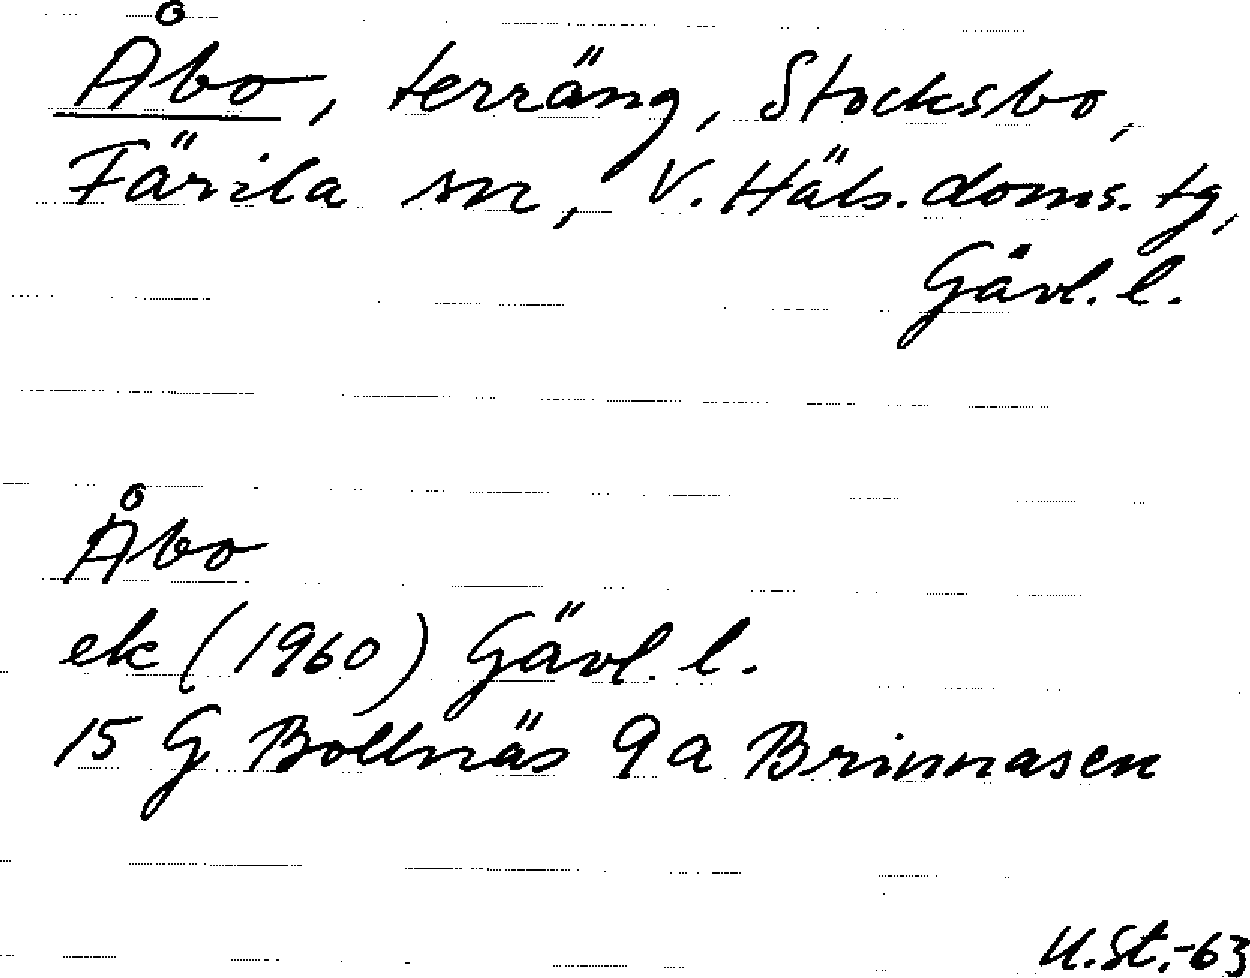 Åbo, terräng, Stocksbo,
Färila sn, V. Häls. doms. tg,
Gävl. l.
Åbo
ek (1960) Gävl. l.
15 G Bollnäs 9 a Brinnasen
U.St.-63